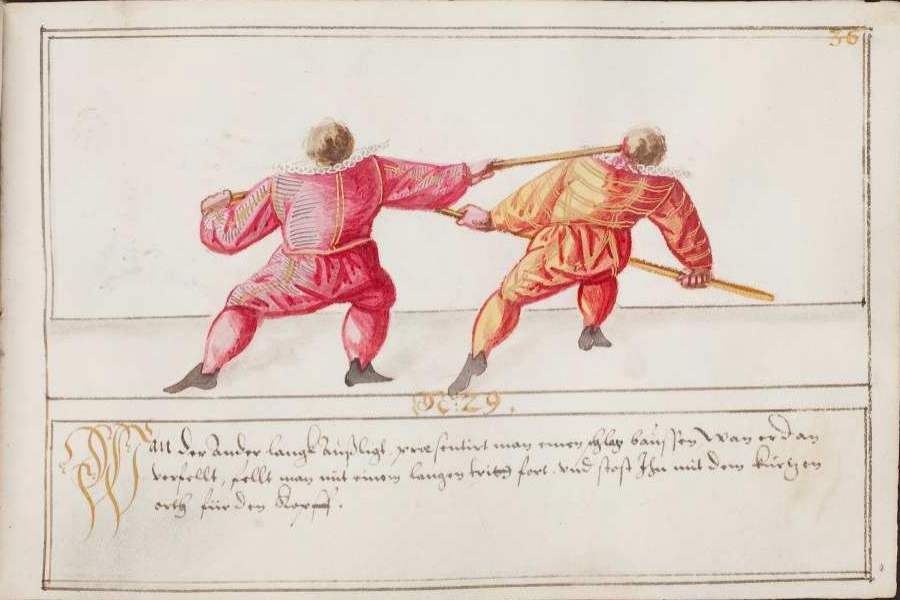 36
N: 29.
Wan der Ander langk Außligt, præsentirt man einen schlag baussen Wan er dan
versellt, sellt man mit einem langen tritt fort vnd stost Ihn mit dem kürtzen
orth für den Kopff.